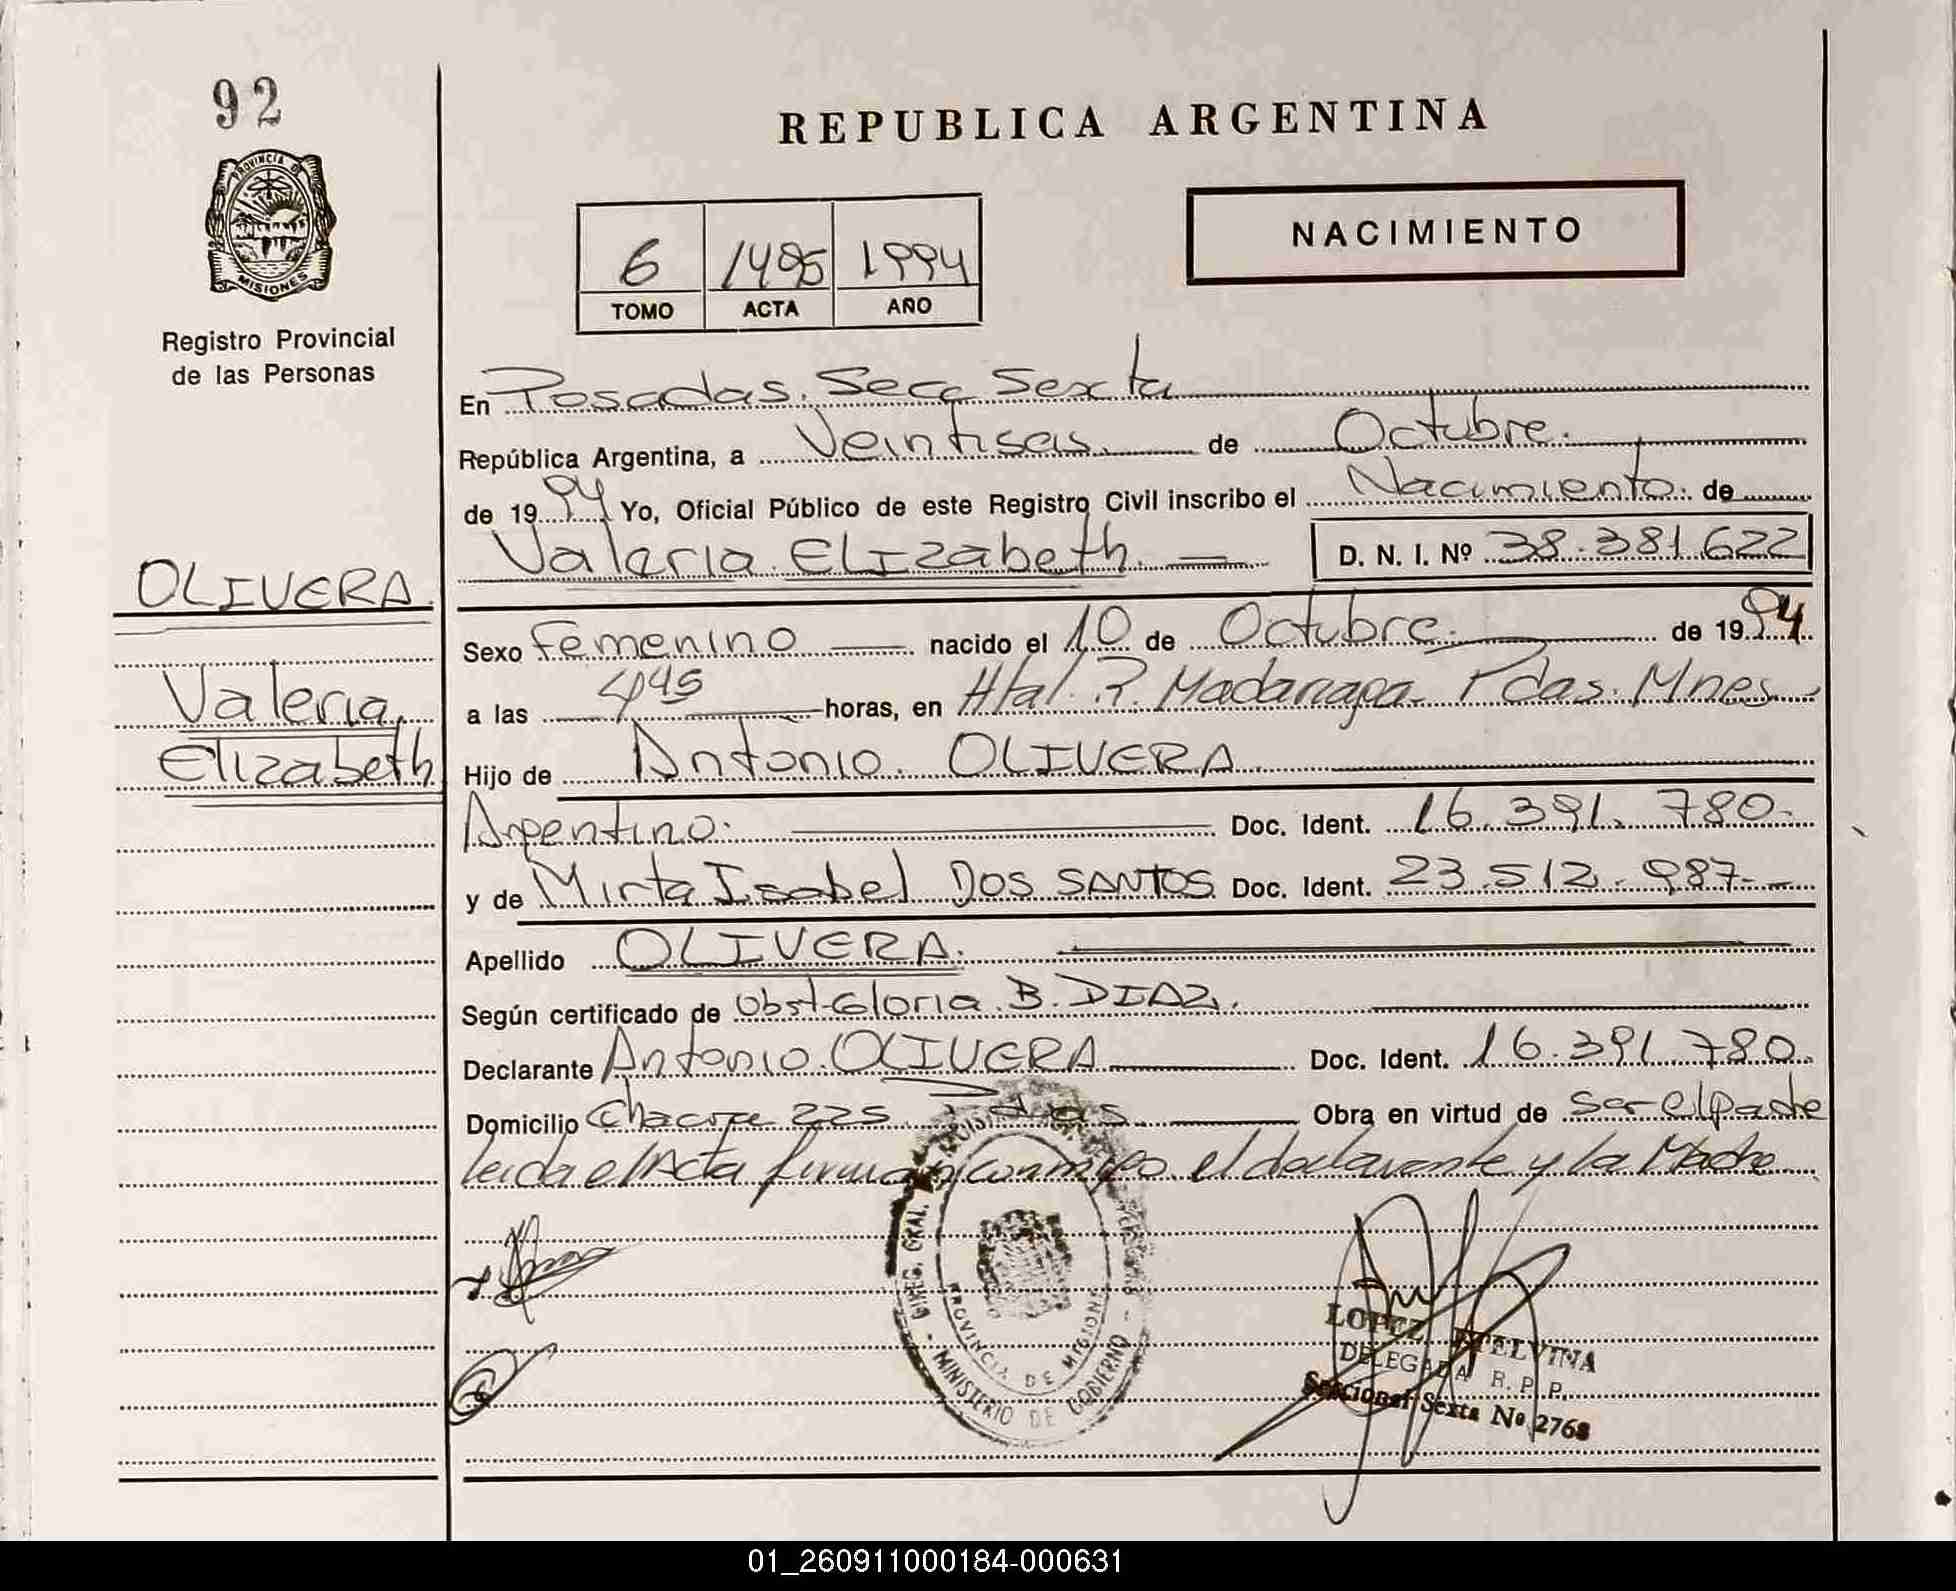 92
REPUBLICA ARGENTINA
PROVINCIA DE
MISIONES
Registro Provincial
de las Personas
6 1495 1994
TOMO ACTA AÑO
NACIMIENTO
En Posadas. Secc Sexta
República Argentina, a Veintiseis de Octubre.
de 1994 Yo, Oficial Público de este Registro Civil inscribo el Nacimiento de
Valeria Elizabeth D. N. I. Nº 38.381.622
OLIVERA
Valeria
Elizabeth
Sexo Femenino nacido el 10 de Octubre. de 1994
a las 445 horas, en Htal. R. Madariaga Pdas. Mnes
Hijo de Antonio. OLIVERA
Argentino. Doc. Ident. 16.391.780.
y de Mirta Isabel DOS SANTOS Doc. Ident. 23.512.987
Apellido OLIVERA.
Según certificado de Obst. Gloria. B. DIAZ.
Declarante Antonio. OLIVERA Doc. Ident. 16.391.780.
Domicilio Chacra 225 Pdas Obra en virtud de ser el padre
leida el Acta firman conmigo el declarante y la Madre
MINISTERIO DE GOBIERNO
PROVINCIA DE MISIONES
LOPEZ ETELVINA
DELEGADA R. P. P.
Seccional Sexta Nº 2768
01_260911000184-000631